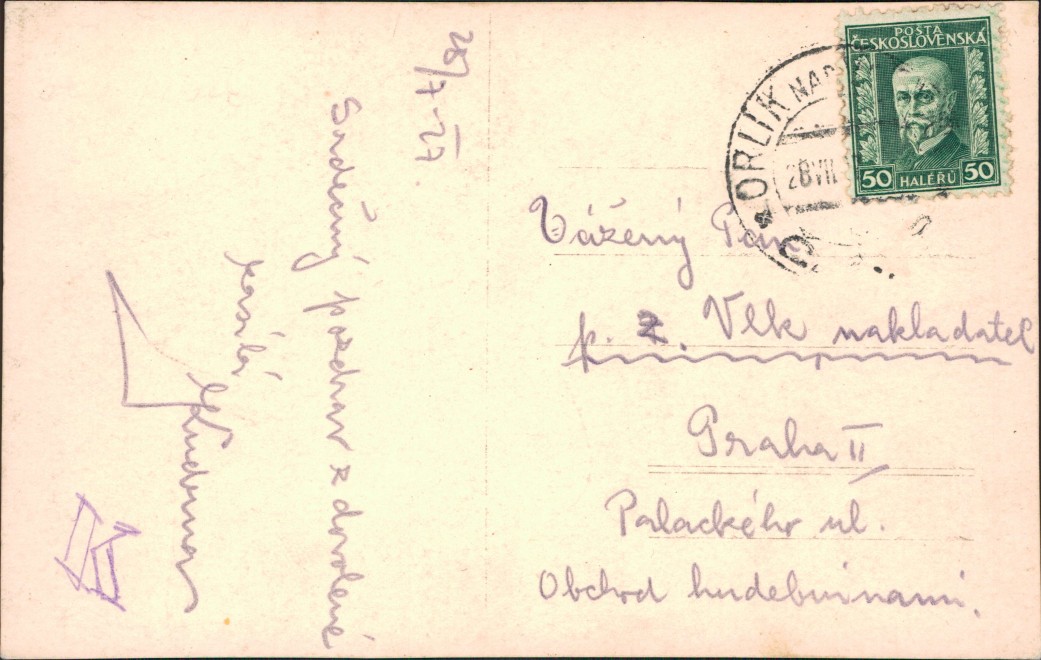 28/7-27
Srdečný pozdrav z dovolené
zasílá
POŠTA
ČESKOSLOVENSKÁ
50 HALÉŘŮ 50
ORLÍK NAD
28 VII
Vážený Pan
p. Z. Vlk nakladatel
Praha II
Palackého ul.
Obchod hudebninami.